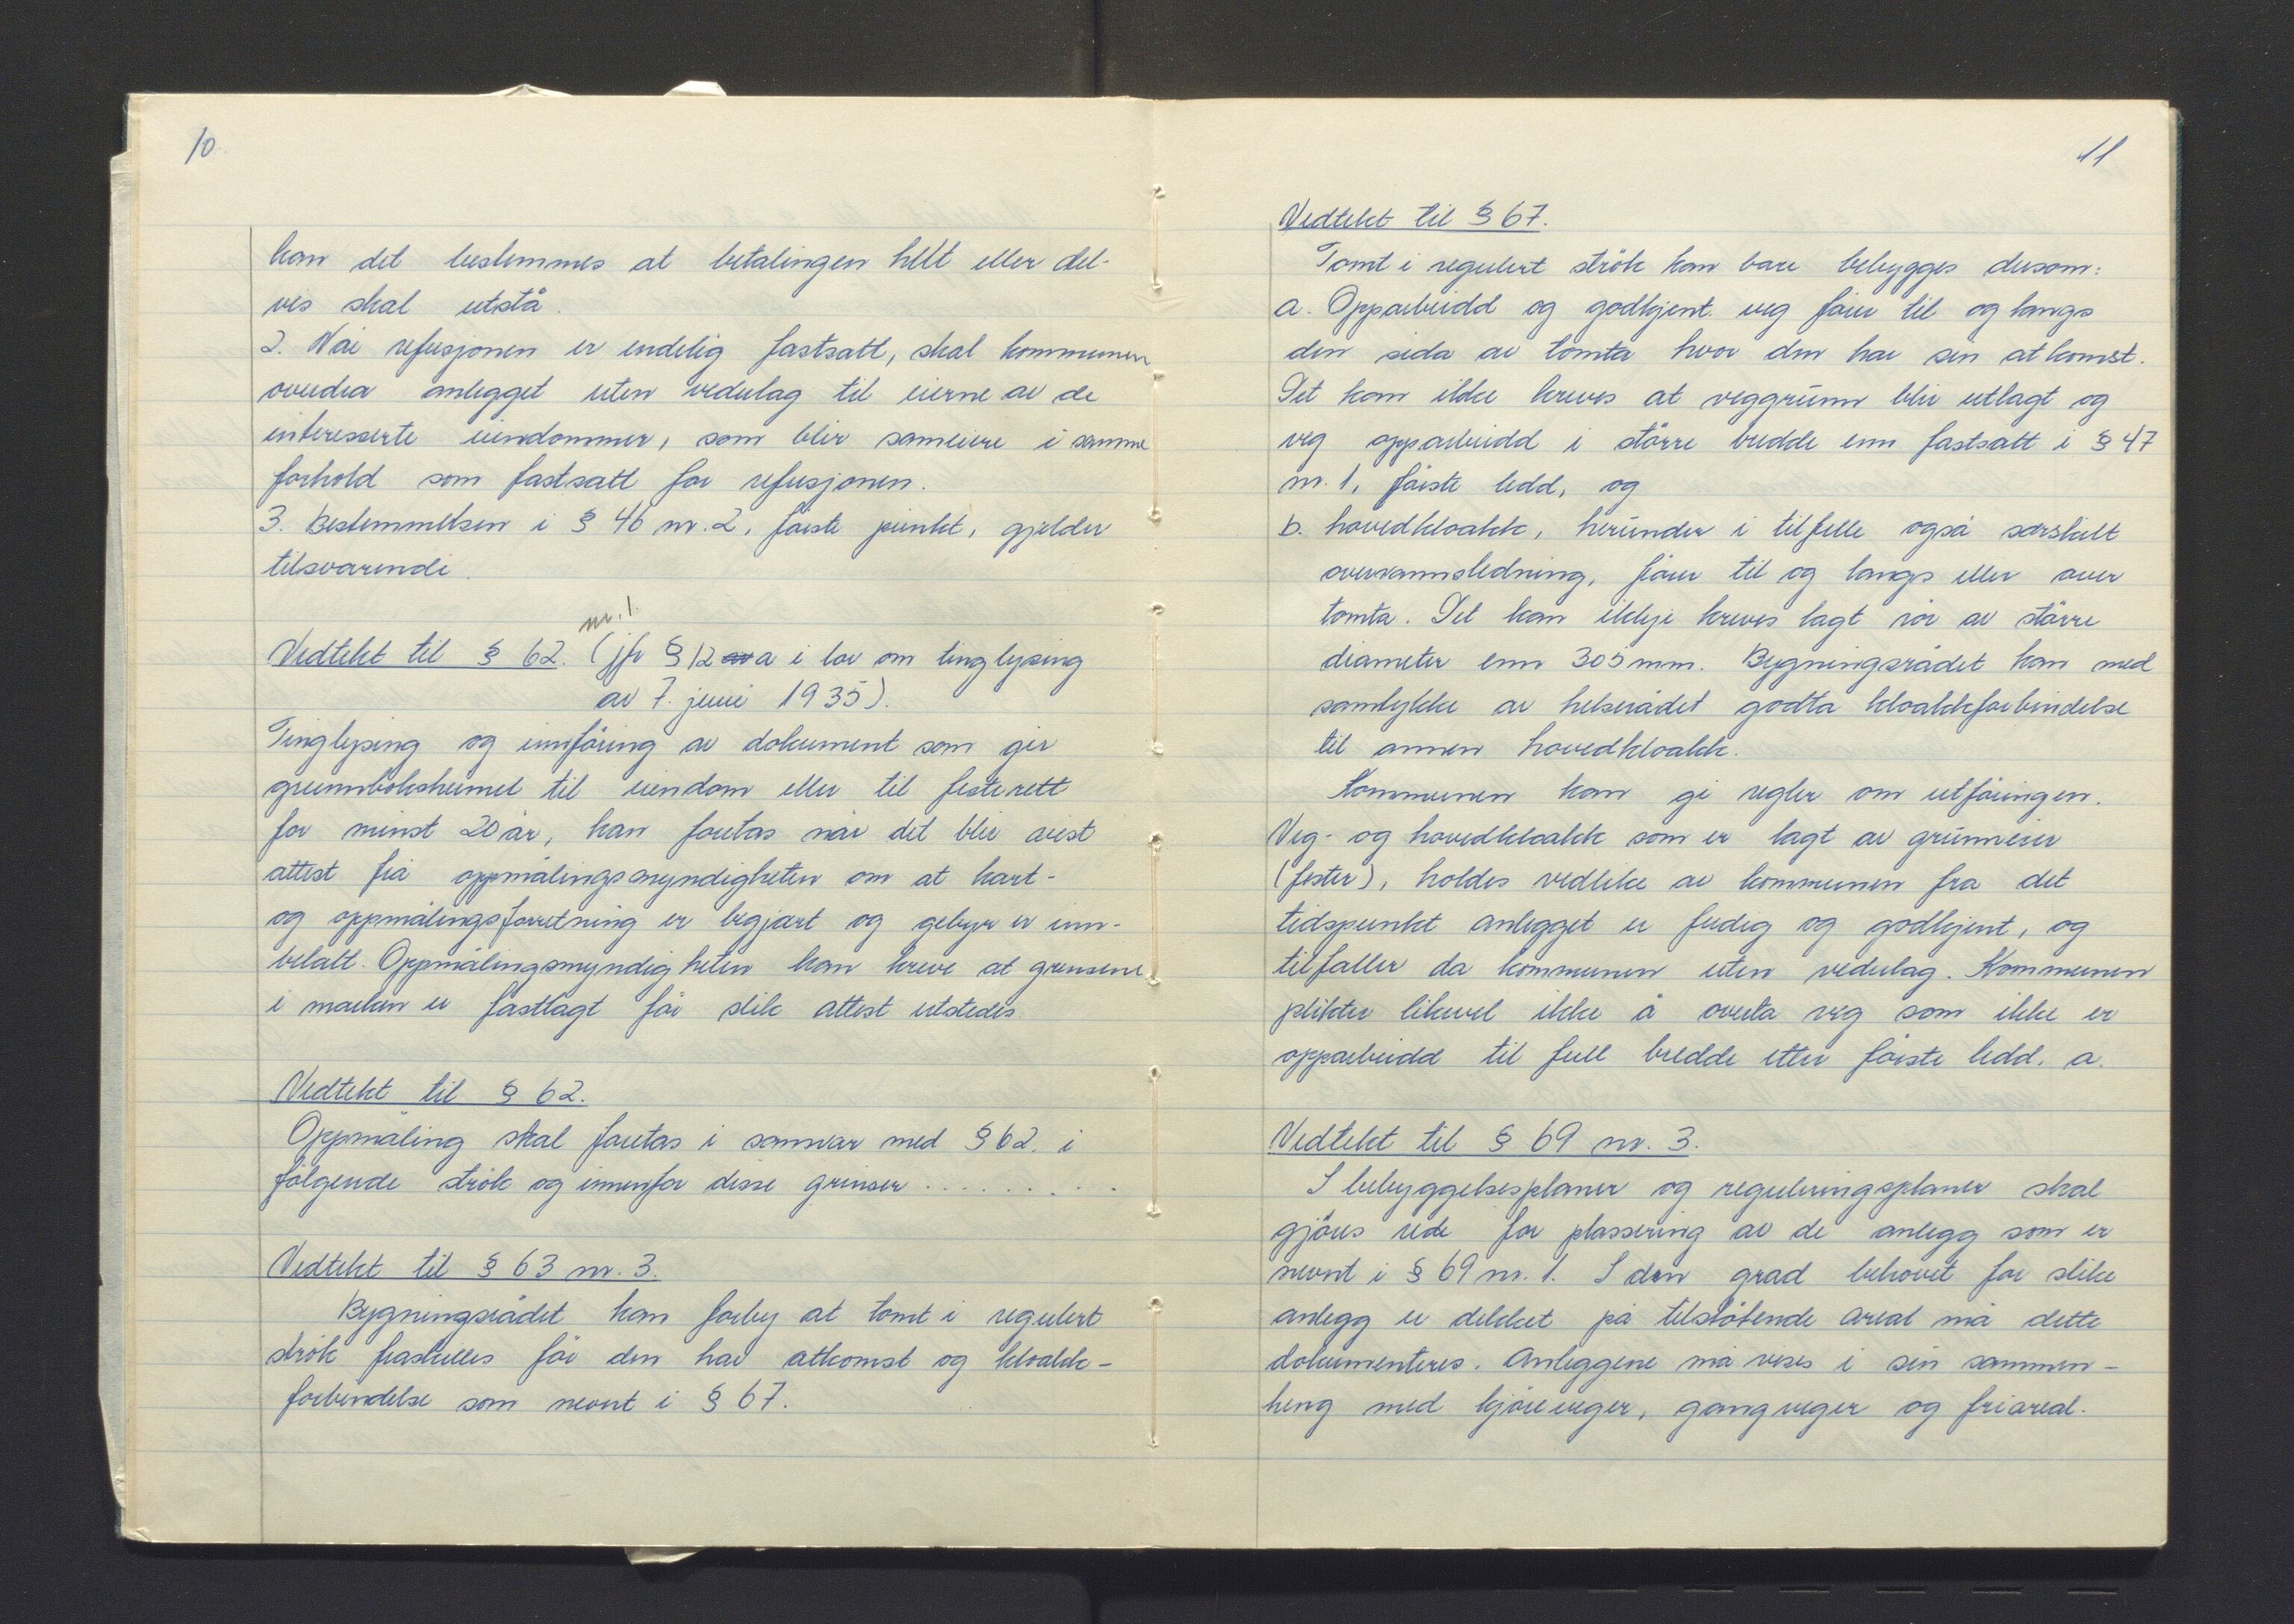 10
kan det bestemmes at betalingen helt eller del-
vis skal utstå.
2. Når refusjonen er endelig fastsatt, skal kommunen
overdra anlegget uten vederlag til eierne av de
interesserte eiendommer, som blir sameiere i samme
forhold som fastsatt for refusjonen.
3. Bestemmelsen i § 46 nr. 2, første punkt, gjelder
tilsvarende.
nr. 1.
Vedtekt til § 62. (jfr § 12 av a i lov om tinglysing
av 7. juni 1935).
Tinglysing og innføring av dokument som gir
grunnbokshemel til eiendom eller til festerett
for minst 20 år, kan foretas når det blir vist
attest frå oppmålingsmyndigheten om at kart-
og oppmålingsforretning er begjært og gebyr er inn-
betalt. Oppmålingsmyndigheten kan kreve at grensene
i marken er fastlagt før slik attest utstedes.
Vedtekt til § 62.
Oppmåling skal foretas i samsvar med § 62. i
følgende strøk og innenfor disse grenser . . . . . . . . .
Vedtekt til § 63 nr. 3.
Bygningsrådet kan forby at tomt i regulert
strøk fraskilles før den har atkomst og kloakk-
forbindelse som nevnt i § 67.
11
Vedtekt til § 67.
Tomt i regulert strök kan bare bebygges dersom:
a. Opparbeidd og godkjent veg fører til og langs
den sida av tomta hvor den har sin atkomst.
Det kan ikke kreves at veggrunn blir utlagt og
veg opparbeidd i större bredde enn fastsatt i § 47
nr. 1, første ledd, og
b. hovedkloakk, herunder i tilfelle også særskilt
overvannsledning, fører til og langs eller over
tomta. Det kan ikkje kreves lagt rør av større
diameter enn 305 mm. Bygningsrådet kan med
samtykke av helserådet godta kloakkforbindelse
til annen hovedkloakk.
Kommunen kan gi regler om utføringen.
Veg- og hovedkloakk som er lagt av grunneier
(fester), holdes vedlike av kommunen fra det
tidspunkt anlegget er ferdig og godkjent, og
tilfaller da kommunen uten vederlag. Kommunen
plikter likevel ikke å overta veg som ikke er
opparbeidd til full bredde etter første ledd. a.
Vedtekt til § 69 nr. 3.
I bebyggelsesplaner og reguleringsplaner skal
gjöres rede for plassering av de anlegg som er
nevnt i § 69 nr. 1. I den grad behovet for slike
anlegg er dekket på tilstøtende areal må dette
dokumenteres. Anleggene må vises i sin sammen-
heng med kjöreveger, gangveger og friareal.